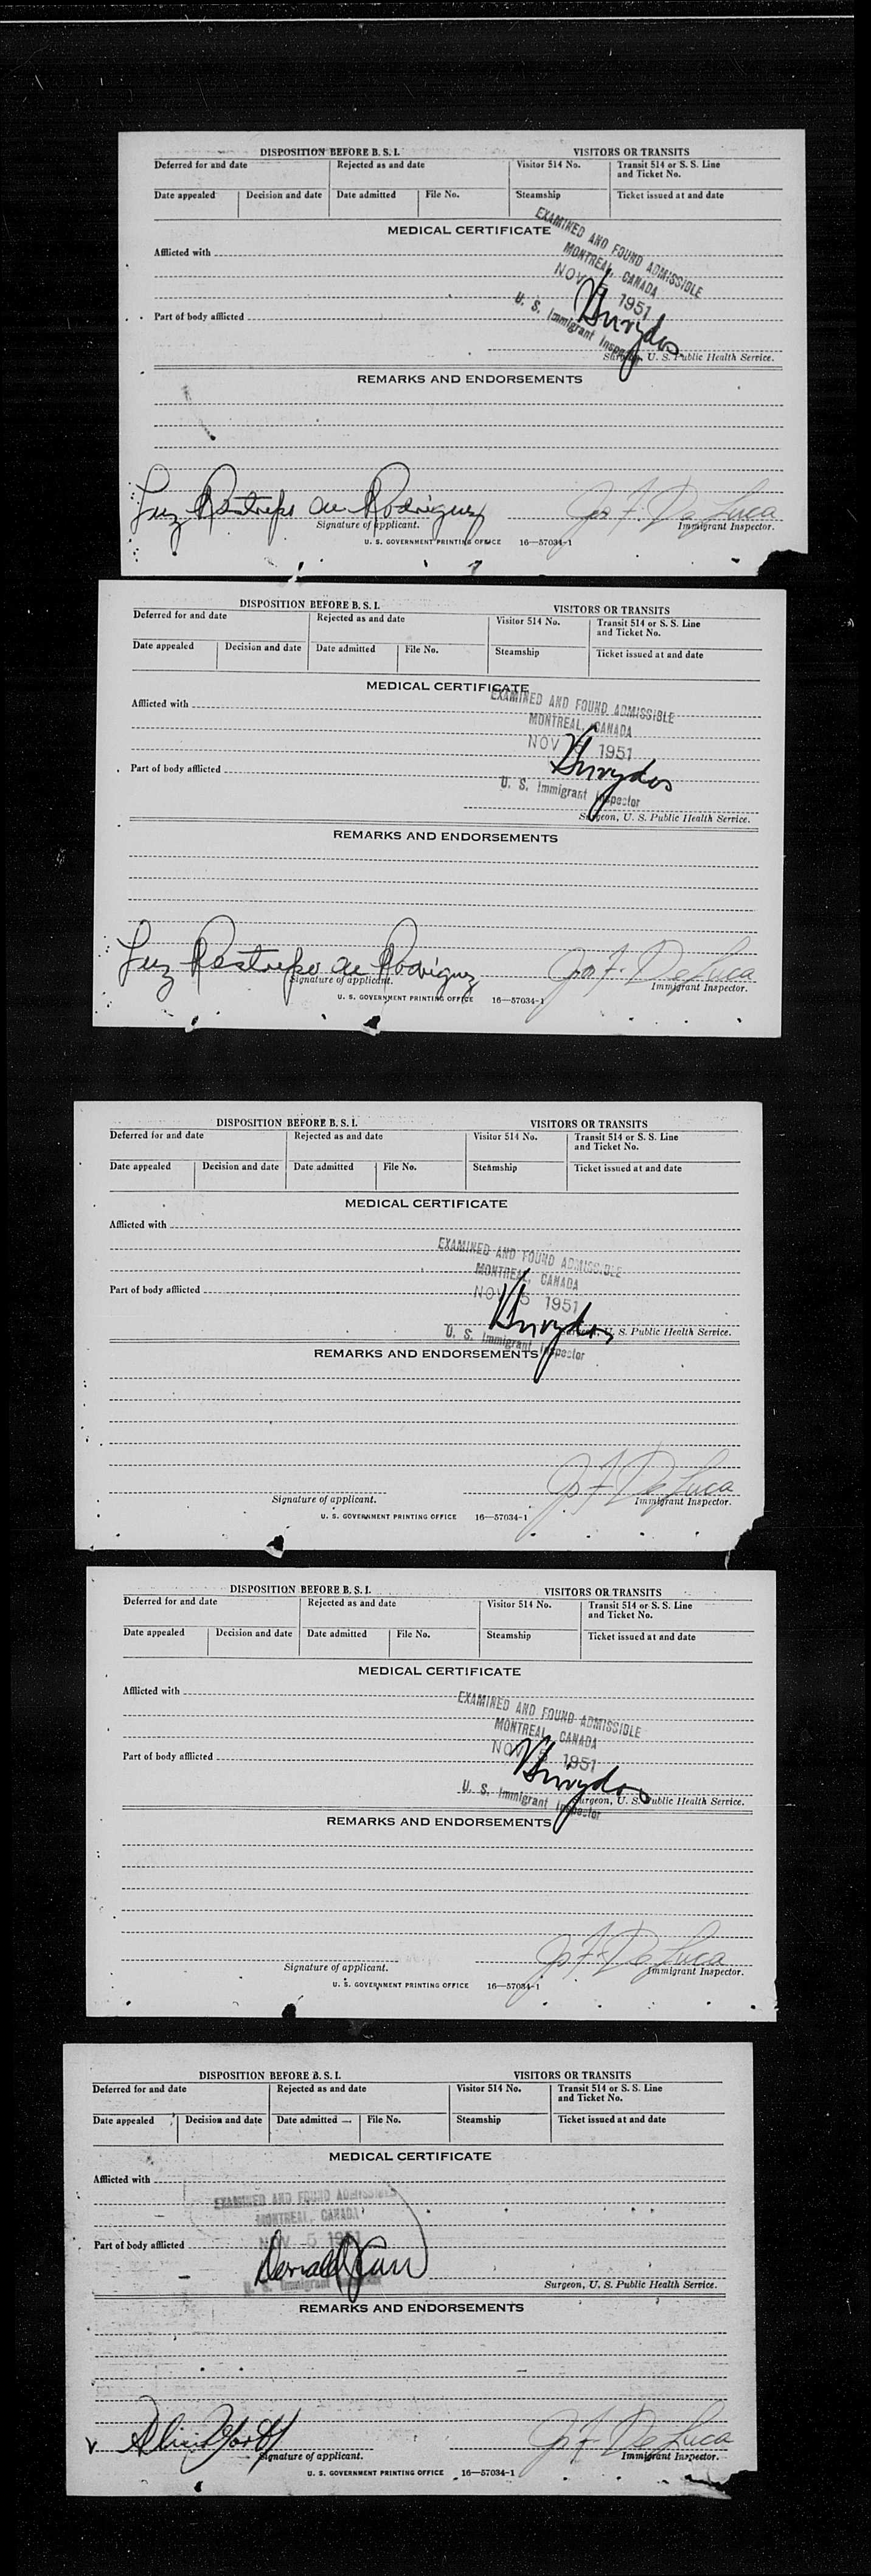 DISPOSITION BEFORE B. S. I. VISITORS OR TRANSITS
Deferred for and date Rejected as and date Visitor 514 No. Transit 514 or S. S. Line and Ticket No.
Date appealed Decision and date Date admitted File No. Steamship Ticket issued at and date
MEDICAL CERTIFICATE
EXAMINED AND FOUND ADMISSIBLE
Afflicted with
MONTREAL, CANADA
NOV 5 1951
Part of body afflicted
U. S. Immigrant Inspector
Surgeon, U. S. Public Health Service.
REMARKS AND ENDORSEMENTS
Luz Restrepo de Rodriguez Jos F. De Luca
Signature of applicant. Immigrant Inspector.
U. S. GOVERNMENT PRINTING OFFICE 16—57034-1
DISPOSITION BEFORE B. S. I. VISITORS OR TRANSITS
Deferred for and date Rejected as and date Visitor 514 No. Transit 514 or S. S. Line and Ticket No.
Date appealed Decision and date Date admitted File No. Steamship Ticket issued at and date
MEDICAL CERTIFICATE
EXAMINED AND FOUND ADMISSIBLE
Afflicted with
MONTREAL, CANADA
NOV 1951
Part of body afflicted
U. S. Immigrant Inspector
Surgeon, U. S. Public Health Service.
REMARKS AND ENDORSEMENTS
Luz Restrepo de Rodriguez Jos F. De Luca
Signature of applicant. Immigrant Inspector.
U. S. GOVERNMENT PRINTING OFFICE 16—57034-1
DISPOSITION BEFORE B. S. I. VISITORS OR TRANSITS
Deferred for and date Rejected as and date Visitor 514 No. Transit 514 or S. S. Line and Ticket No.
Date appealed Decision and date Date admitted File No. Steamship Ticket issued at and date
MEDICAL CERTIFICATE
Afflicted with
EXAMINED AND FOUND ADMISSIBLE
MONTREAL, CANADA
Part of body afflicted
NOV 5 1951
U. S. Immigrant Inspector
Surgeon, U. S. Public Health Service.
REMARKS AND ENDORSEMENTS
Jos F. De Luca
Signature of applicant. Immigrant Inspector.
U. S. GOVERNMENT PRINTING OFFICE 16—57034-1
DISPOSITION BEFORE B. S. I. VISITORS OR TRANSITS
Deferred for and date Rejected as and date Visitor 514 No. Transit 514 or S. S. Line and Ticket No.
Date appealed Decision and date Date admitted File No. Steamship Ticket issued at and date
MEDICAL CERTIFICATE
Afflicted with
EXAMINED AND FOUND ADMISSIBLE
MONTREAL, CANADA
NOV 5 1951
Part of body afflicted
U. S. Immigrant Inspector
Surgeon, U. S. Public Health Service.
REMARKS AND ENDORSEMENTS
Jos F. De Luca
Signature of applicant. Immigrant Inspector.
U. S. GOVERNMENT PRINTING OFFICE 16—57034-1
DISPOSITION BEFORE B. S. I. VISITORS OR TRANSITS
Deferred for and date Rejected as and date Visitor 514 No. Transit 514 or S. S. Line and Ticket No.
Date appealed Decision and date Date admitted File No. Steamship Ticket issued at and date
MEDICAL CERTIFICATE
Afflicted with
EXAMINED AND FOUND ADMISSIBLE
MONTREAL, CANADA
NOV 5 1951
Part of body afflicted
Donald J Carr
U. S. Immigrant Inspector
Surgeon, U. S. Public Health Service.
REMARKS AND ENDORSEMENTS
Jos F. De Luca
Signature of applicant. Immigrant Inspector.
U. S. GOVERNMENT PRINTING OFFICE 16—57034-1